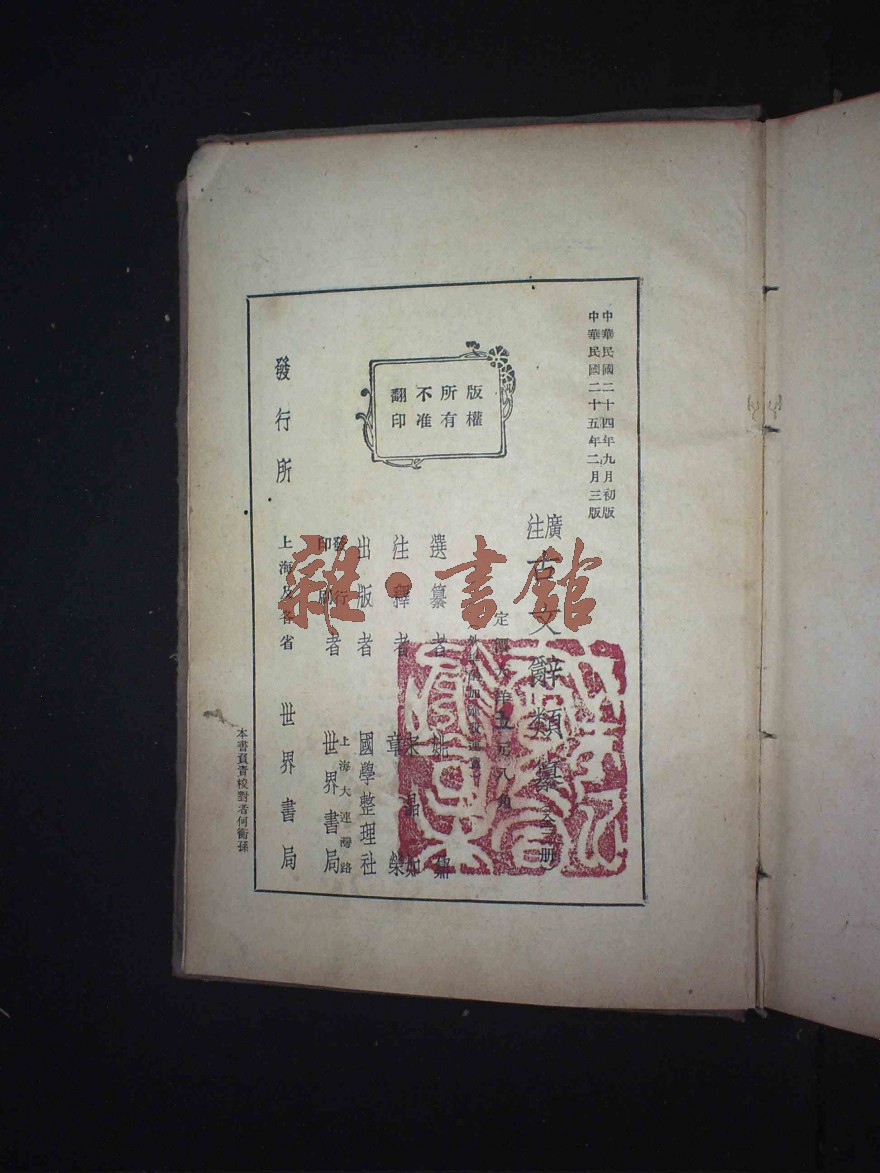 中華民國二十四年九月初版
中華民國二十五年二月三版
版權
所有
不准
翻印
廣注古文辭類纂
冊
定價大洋五元八角
選纂者 姚鼐
注釋者 宋晶如 章榮
出版者 國學整理社
發行
印刷者 上海大連灣路 世界書局
發行所 上海及各省 世界書局
本書負責校對者何銜孫
雜·書館